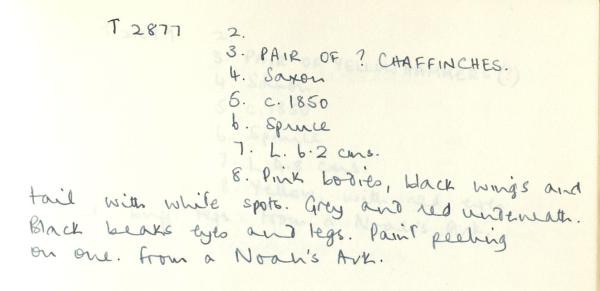 T 2877 2.
3. PAIR OF ? CHAFFINCHES.
4. Saxon
5. c. 1850
6. Spruce
7. L. 6.2 cms.
8. Pink bodies, black wings and
tail with white spots. Grey and red underneath.
Black beaks eyes and legs. Paint peeling
on one. From a Noah's Ark.